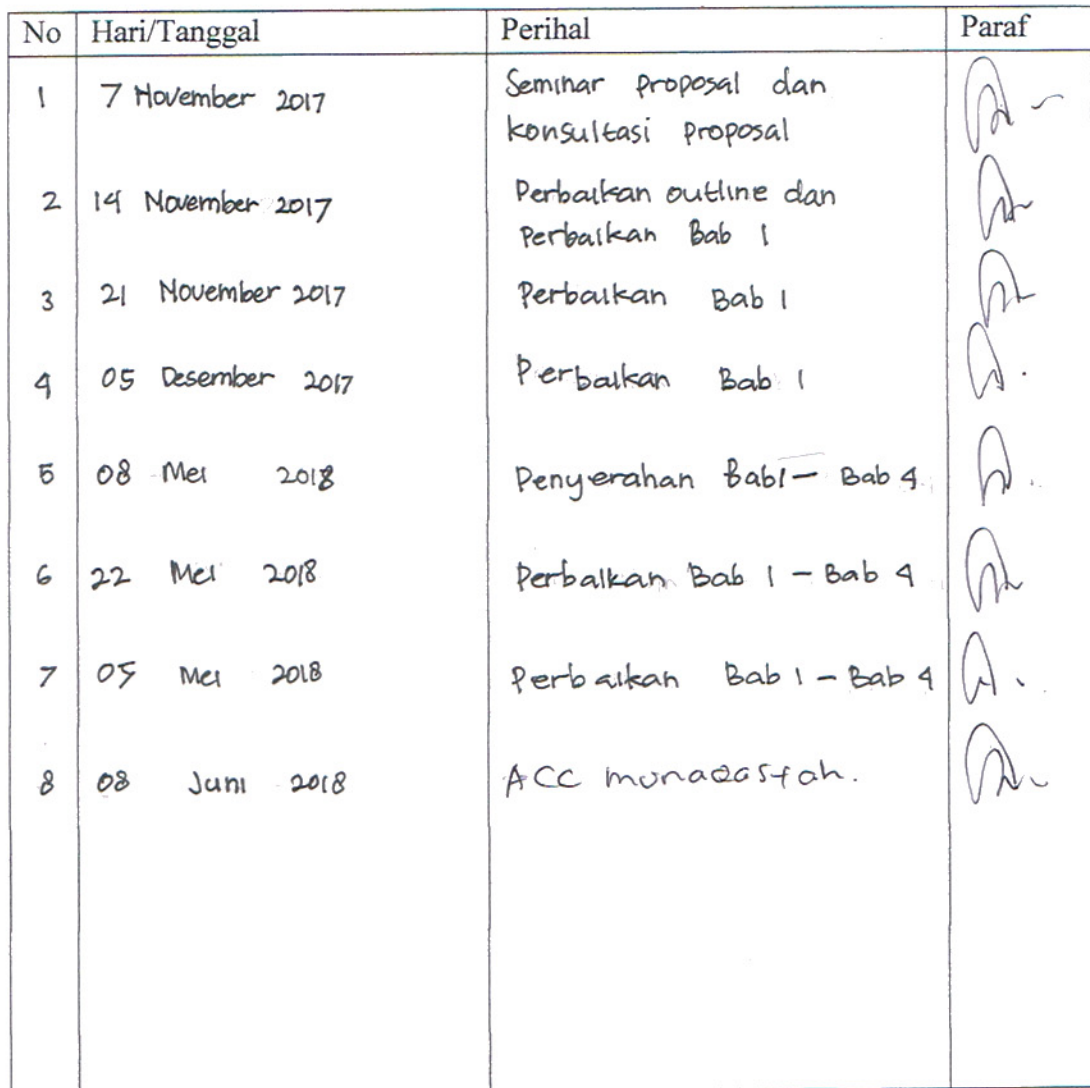 No Hari/Tanggal Perihal Paraf
1 7 November 2017 Seminar proposal dan
konsultasi proposal
2 14 November 2017 Perbaikan outline dan
Perbaikan Bab 1
3 21 November 2017 Perbaikan Bab 1
4 05 Desember 2017 Perbaikan Bab 1
5 08 Mei 2018 Penyerahan Bab 1 - Bab 4
6 22 Mei 2018 Perbaikan Bab 1 - Bab 4
7 05 Mei 2018 Perbaikan Bab 1 - Bab 4
8 08 Juni 2018 ACC munaqasyah.